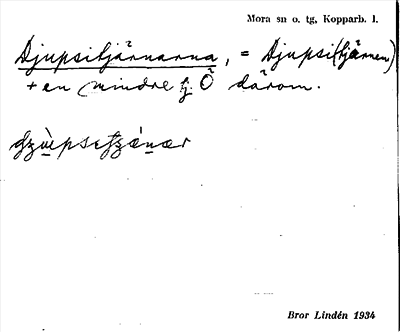 Mora sn o. tg, Kopparb. l.
Djupsitjärnarna, = Djupsi(tjärnen)
+ en mindre tj. Ö därom.
Bror Lindén 1934